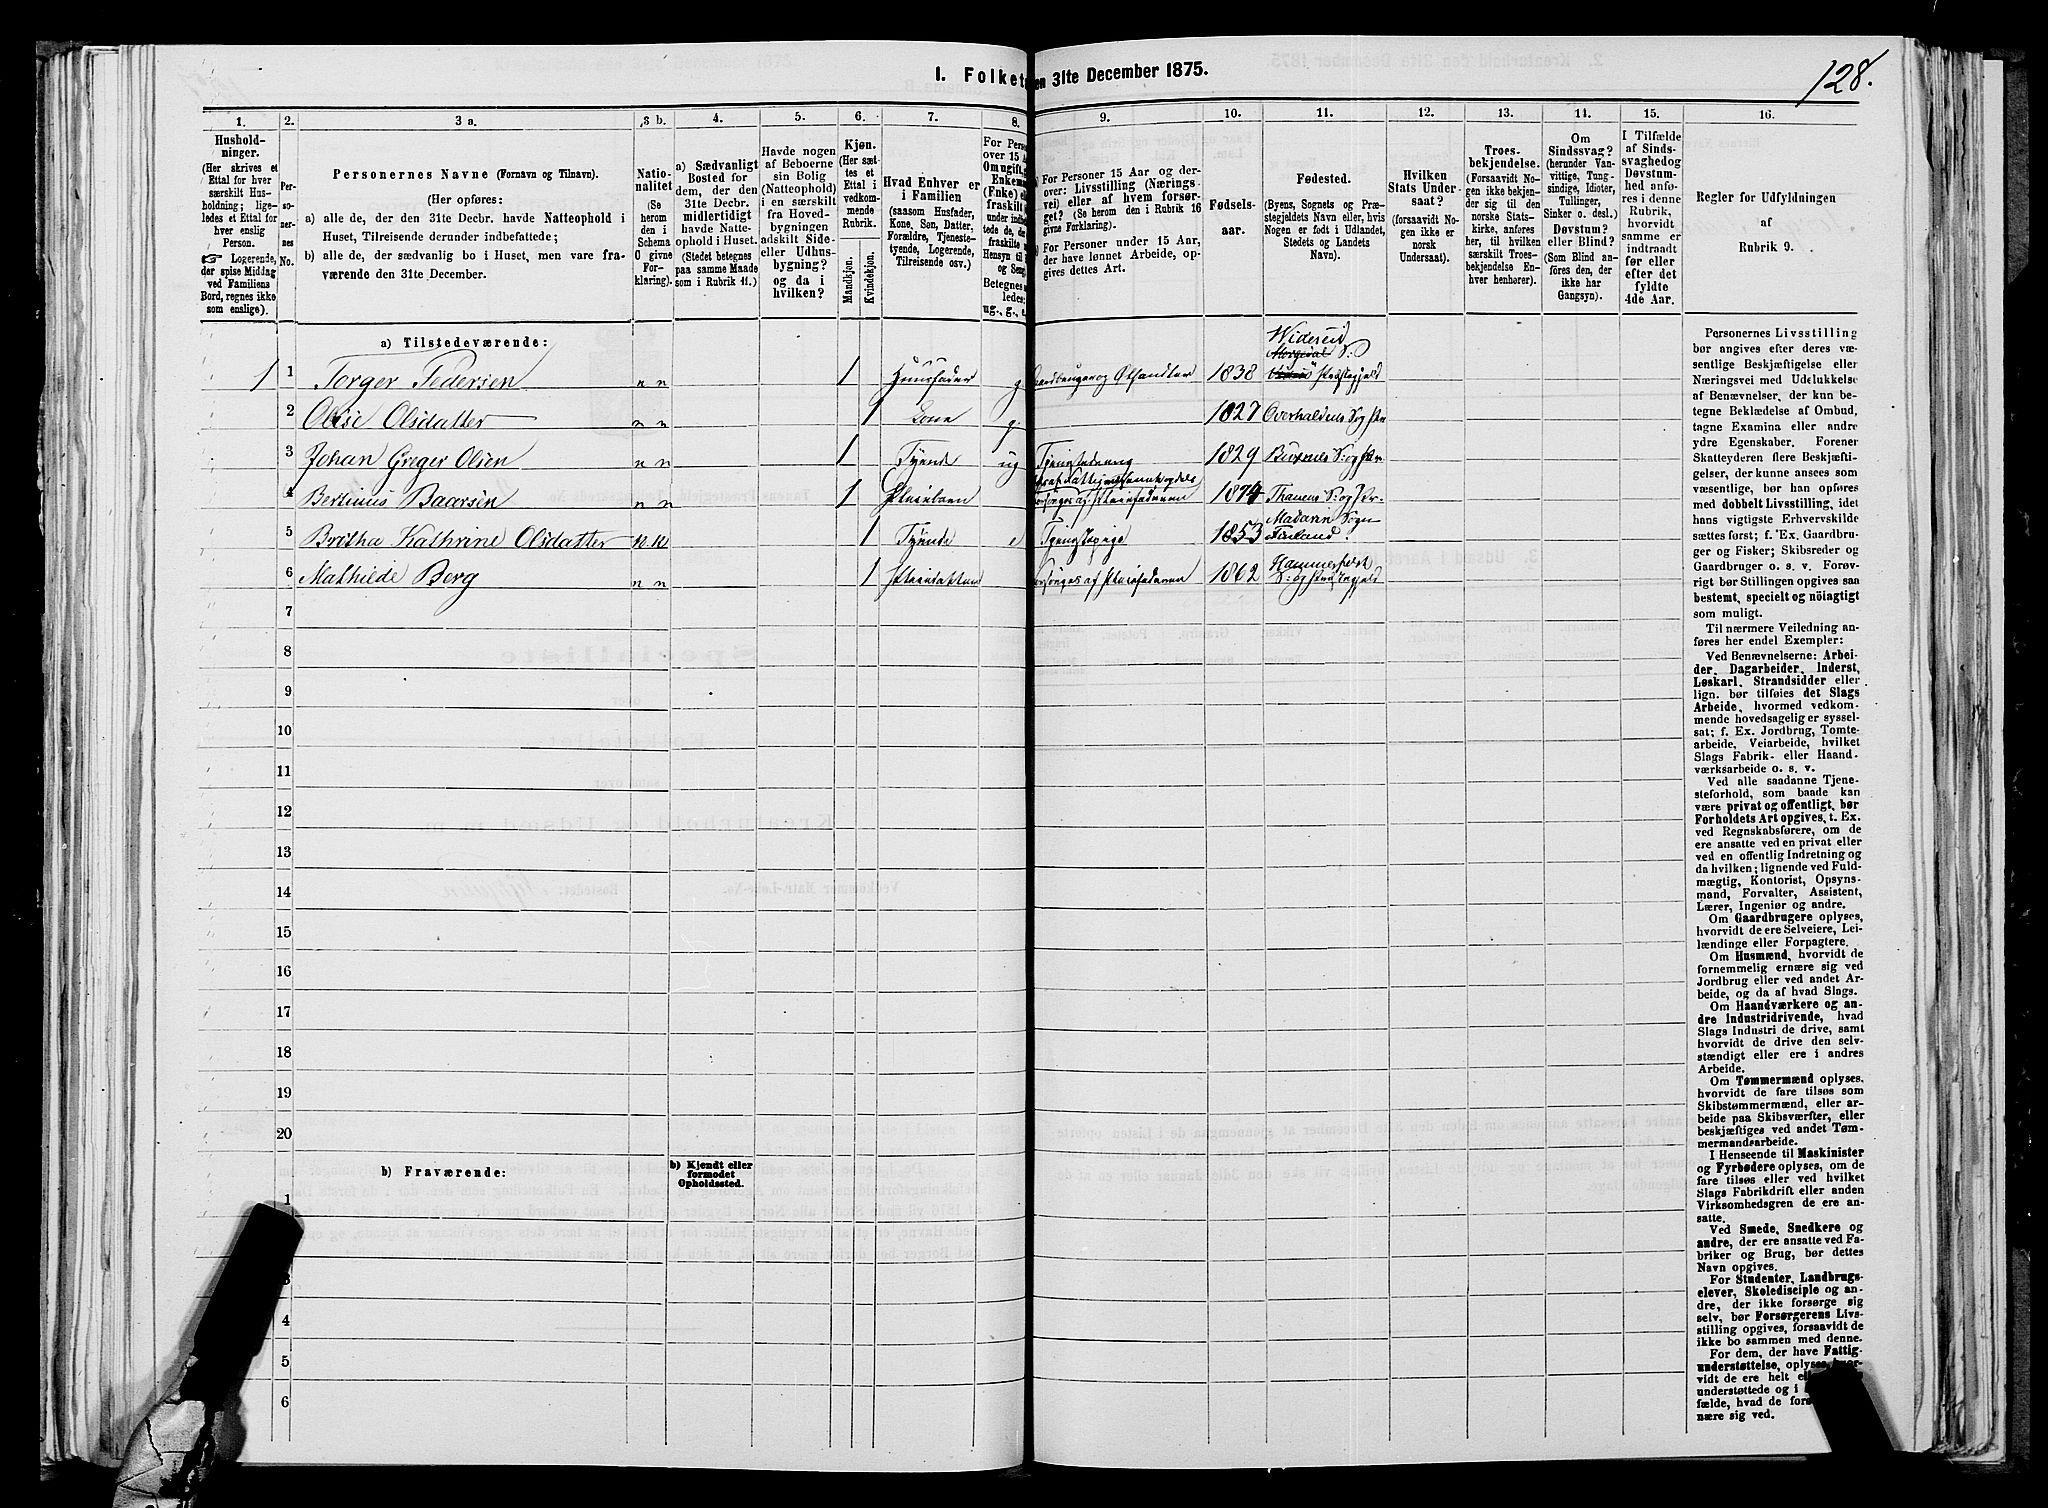 128.
I. Folket
en 31te December 1875.
1. 2. 3 a. 3 b. 4. 5. 6. 7. 8. 9. 10. 11. 12. 13. 14. 15. 16.
Hushold-
ninger.
(Her skrives et
Ettal for hver
særskilt Hus-
holdning; lige-
ledes et Ettal for
hver enslig
Person.
☞ Logerende,
der spise Middag
ved Familiens
Bord, regnes ikke
som enslige).
Per-
so-
ner-
nes
No.
Personernes Navne (Fornavn og Tilnavn).
(Her opføres:
a) alle de, der den 31te Decbr. havde Natteophold i
Huset, Tilreisende derunder indbefattede;
b) alle de, der sædvanlig bo i Huset, men vare fra-
værende den 31te December.
Natio-
nalitet
(Se
herom
den i
Schema
O givne
For-
klaring).
a) Sædvanligt
Bosted for
dem, der den
31te Decbr.
midlertidigt
havde Natte-
ophold i Huset.
(Stedet betegnes
paa samme Maade
som i Rubrik 11.)
Havde nogen
af Beboerne
sin Bolig
(Natteophold)
i en særskilt
fra Hoved-
bygningen
adskilt Side-
eller Udhus-
bygning?
og da i
hvilken?
Kjøn.
(Her sæt-
tes et
Ettal i
vedkom-
mende
Rubrik.
Mandkjøn.
Kvindekjøn.
Hvad Enhver er
i Familien
(saasom Husfader,
Kone, Søn, Datter,
Forældre, Tjeneste-
tyende, Logerende,
Tilreisende osv.)
For Person
over 15 Aa
Om ugift, g
Enkema
(Fnke) e
fraskilt
under
tede de,
fraskilte
Hensyn til
og Seng
Betegnes
ledes:
ug., g., e.
a) For Personer 15 Aar og der-
over: Livsstilling (Nærings-
vei) eller af hvem forsør-
get? (Se herom den i Rubrik 16
givne Forklaring).
b) For Personer under 15 Aar,
der have lønnet Arbeide, op-
gives dettes Art.
Fødsels-
aar.
Fødested.
(Byens, Sognets og Præ-
stegjeldets Navn eller, hvis
Nogen er født i Udlandet,
Stedets og Landets
Navn).
Hvilken
Stats Under-
saat?
(forsaavidt No-
gen ikke er
norsk
Undersaat).
Troes-
bekjendelse.
(Forsaavidt No-
gen ikke bekjen-
der sig til den
norske Stats-
kirke, anføres
her, til hvilken
særskilt Troes-
bekjendelse En-
hver henhører).
Om
Sindssvag?
(herunder Van-
vittige, Tung-
sindige, Idioter,
Tullinger,
Sinker o. desl.)
Døvstum?
eller Blind?
(Som Blind an-
føres den, der
ikke har
Gangsyn).
I Tilfælde
af Sinds-
svaghed og
Døvstum-
hed anfø-
res i denne
Rubrik,
hvorvidt
samme er
indtraadt
før eller
efter det
fyldte
4de Aar.
Regler for Udfyldningen
af
Rubrik 9.
a) Tilstedeværende:
1 1 Torger Pedersen n n 1 Huusfader g Gaardbruger og Ølhandler 1838 Wideseid S: Præstegjeld
2 Olise Olsdatter n n 1 Kone g. 1827 Overhaldens S og Pr
3 Johan Greger Olsen n n 1 Tyende ug 1829 Buxnes S: og Pr
4 Bertinus Baarsen n n 1 Pleiebarn forsørges af Pleiefaderen 1874 Thanens S: og Pr:
5 Britha Kathrine Olsdatter n. n 1 Tyende e Tjenstepige 1853 Madarin Sogn Finland.
6 Mathilde Berg n n 1 Pleiedatter forsørges af Pleiefaderen 1862 Hammerfest S: og Præstegjeld
7
8
9
10
11
12
13
14
15
16
17
18
19
20
b) Fraværende:
b) Kjendt eller
formodet
Opholdssted.
1
3
4
5
6
Personernes Livsstilling
bør angives efter deres væ-
sentlige Beskjæftigelse eller
Næringsvei med Udelukkelse
af Benævnelser, der kun be-
tegne Beklædelse af Ombud,
tagne Examina eller andre
ydre Egenskaber. Forener
Skatteyderen flere Beskjæfti-
gelser, der kunne ansees som
væsentlige, bør han opføres
med dobbelt Livsstilling, idet
hans vigtigste Erhvervskilde
sættes først; f. Ex. Gaardbru-
ger og Fisker; Skibsreder og
Gaardbruger o. s. v. Forøv-
rigt bør Stillingen opgives saa
bestemt, specielt og nöiagtigt
som muligt.
Til nærmere Veiledning an-
føres her endel Exempler:
Ved Benævnelserne: Arbei-
der, Dagarbeider, Inderst,
Løskarl, Strandsidder eller
lign. bør tilføies det Slags
Arbeide, hvormed vedkom-
mende hovedsagelig er syssel-
sat; f. Ex. Jordbrug, Tomte-
arbeide, Veiarbeide, hvilket
Slags Fabrik- eller Haand-
værksarbeide o. s. v.
Ved alle saadanne Tjene-
steforhold, som baade kan
være privat og offentligt, bør
Forholdets Art opgives, t. Ex.
ved Regnskabsførere, om de
ere ansatte ved en privat eller
ved en offentlig Indretning og
da hvilken; lignende ved Fuld-
mægtig, Kontorist, Opsyns-
mand, Forvalter, Assistent,
Lærer, Ingeniør og andre.
Om Gaardbrugere oplyses,
hvorvidt de ere Selveiere, Lei-
lændinge eller Forpagtere.
Om Husmænd, hvorvidt de
fornemmelig ernære sig ved
Jordbrug eller ved andet Ar-
beide, og da af hvad Slags.
Om Haandværkere og an-
dre Industridrivende, hvad
Slags Industri de drive, samt
hvorvidt de drive den selv-
stændigt eller ere i andres
Arbeide.
Om Tømmermænd oplyses,
hvorvidt de fare tilsøs som
Skibstømmermænd, eller ar-
beide paa Skibsværfter, eller
beskjæftiges ved andet Tøm-
mermandsarbeide.
I Henseende til Maskinister
og Fyrbødere oplyses, om de
fare tilsøs eller ved hvilket
Slags Fabrikdrift eller anden
Virksomhedsgren de ere an-
satte.
Ved Smede, Snedkere og
andre, der ere ansatte ved Fa-
briker og Brug, bør dettes
Navn opgives.
For Studenter, Landbrugs-
elever, Skoledisciple og an-
dre, der ikke forsørge sig
selv, bør Forsørgerens Livs-
stilling opgives, forsaavidt de
ikke bo sammen med denne.
For dem, der have Fattig-
understøttelse, oplyses, hvor-
vidt de ere helt el
understøttede og i
fælde, hvad de fors
nære sig ved.